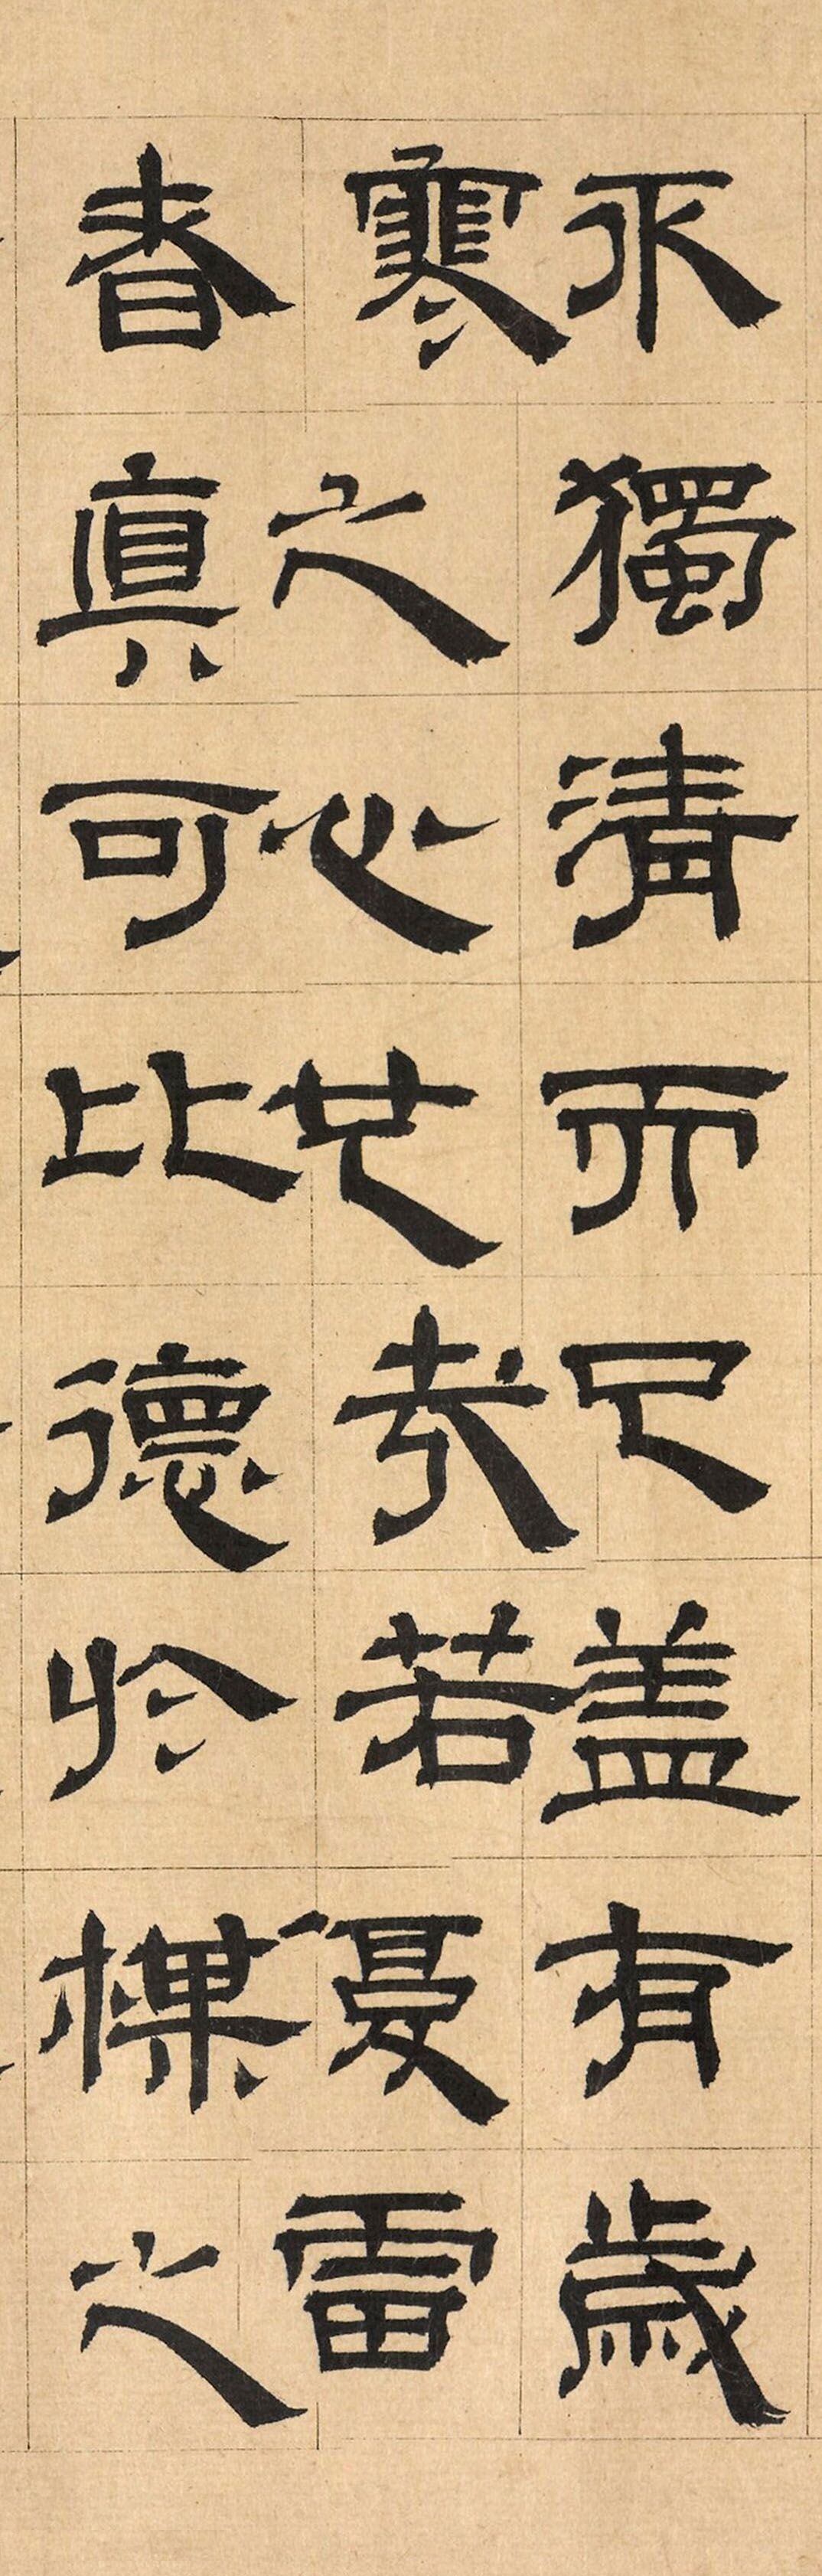 不獨清而已盖有歲
寒之心也哉若夏雷
者真可比德於楳之